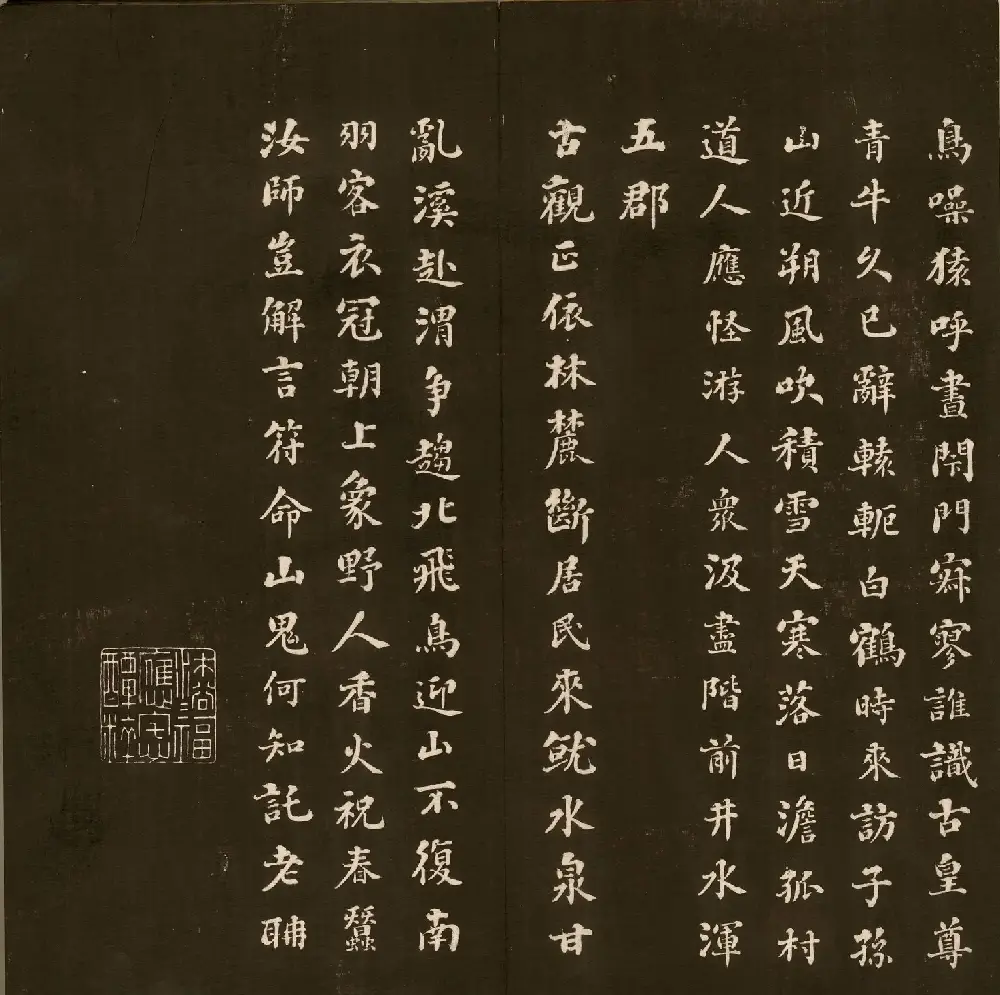 鳥噪猿呼晝閇門寂寥誰識古皇尊
青牛久已辭轅軛白鶴時來訪子孫
山近朔風吹積雪天寒落日澹孤村
道人應怪游人衆汲盡階前井水渾
五郡
古觀正依林麓斷居民來就水泉甘
亂溪赴渭争趨北飛鳥迎山不復南
羽客衣冠朝上象野人香火祝春蠶
汝師豈解言符命山鬼何知託老聃